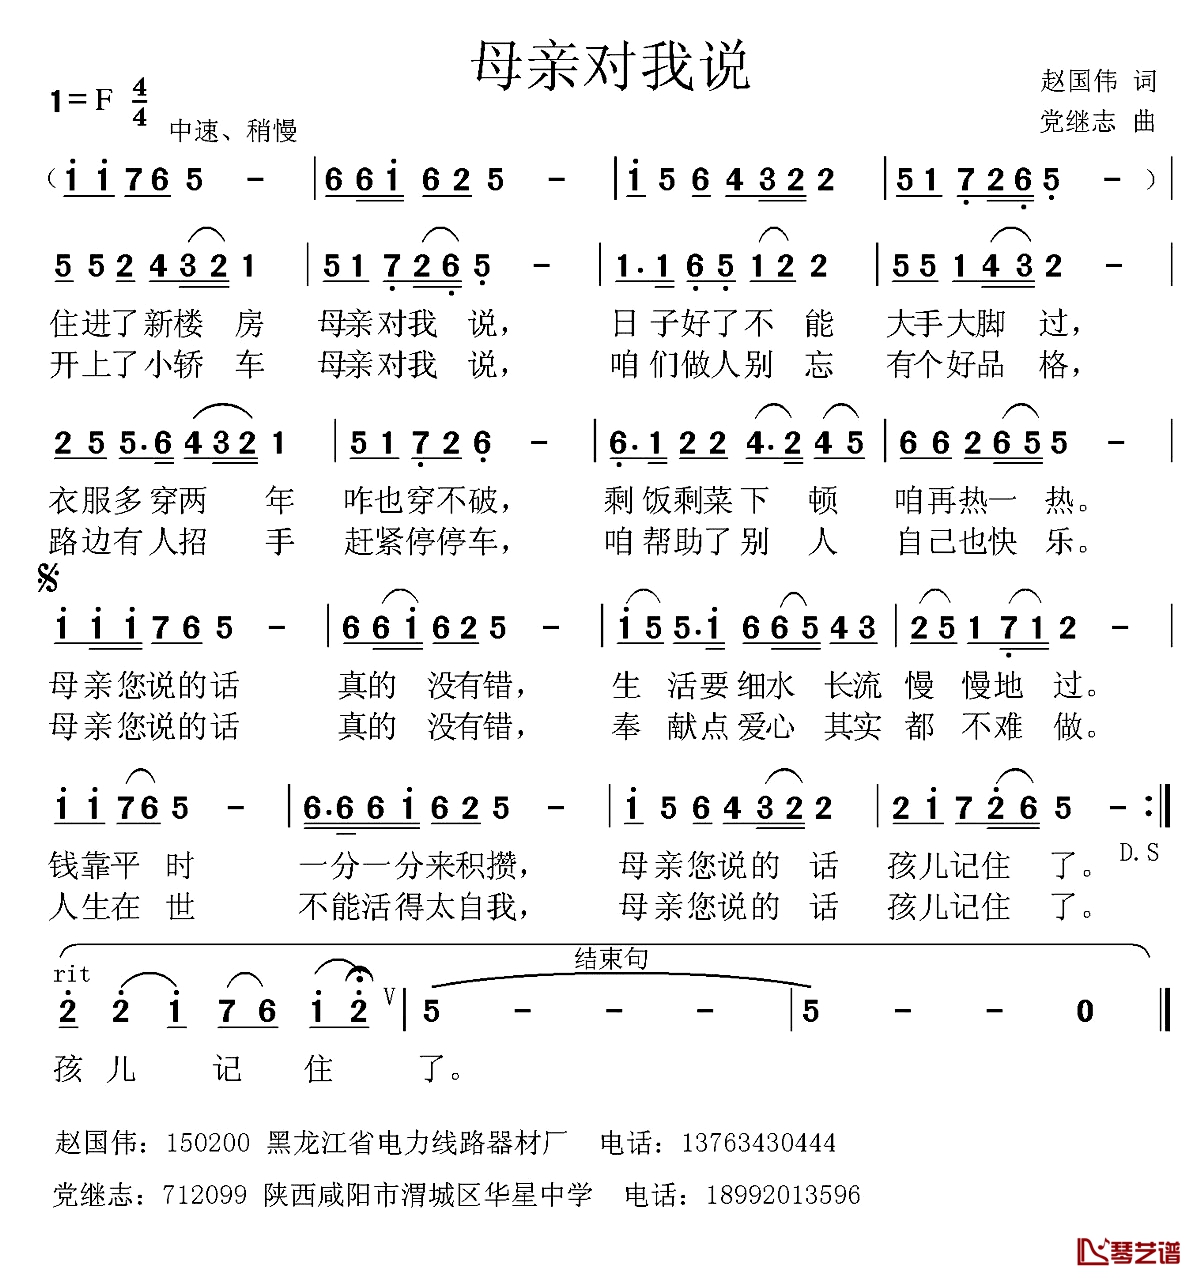 母亲对我说
赵国伟 词
1=F 4/4
中速、稍慢
党继志 曲
（i i 7 6 5 - | 6 6 i 6 2 5 - | i 5 6 4 3 2 2 | 5 1 7 2 6 5 - ）|
5 5 2 4 3 2 1 | 5 1 7 2 6 5 - | 1. 1 6 5 1 2 2 | 5 5 1 4 3 2 - |
住进了新楼 房 母亲对我 说， 日子好了不 能 大手大脚 过，
开上了小轿 车 母亲对我 说， 咱们做人别 忘 有个好品 格，
2 5 5. 6 4 3 2 1 | 5 1 7 2 6 - | 6. 1 2 2 4. 2 4 5 | 6 6 2 6 5 5 - |
衣服多穿两 年 咋也穿不破， 剩饭剩菜下 顿 咱再热一 热。
路边有人招 手 赶紧停停车， 咱帮助了别 人 自己也快 乐。
𝄋
i i i 7 6 5 - | 6 6 i 6 2 5 - | i 5 5. i 6 6 5 4 3 | 2 5 1 7 1 2 - |
母亲您说的话 真的 没有错， 生 活要细水 长流 慢 慢地 过。
母亲您说的话 真的 没有错， 奉 献点爱心 其实 都 不难 做。
i i 7 6 5 - | 6. 6 6 i 6 2 5 - | i 5 6 4 3 2 2 | 2 i 7 2 6 5 - :|
D.S
钱靠平 时 一分一分来积攒， 母亲您说的 话 孩儿记住 了。
人生在 世 不能活得太自我， 母亲您说的 话 孩儿记住 了。
结束句
rit
2 2 i 7 6 i 2 V | 5 - - - | 5 - - 0 ‖
孩 儿 记 住 了。
赵国伟：150200 黑龙江省电力线路器材厂 电话：13763430444
党继志：712099 陕西咸阳市渭城区华星中学 电话：18992013596
琴艺谱